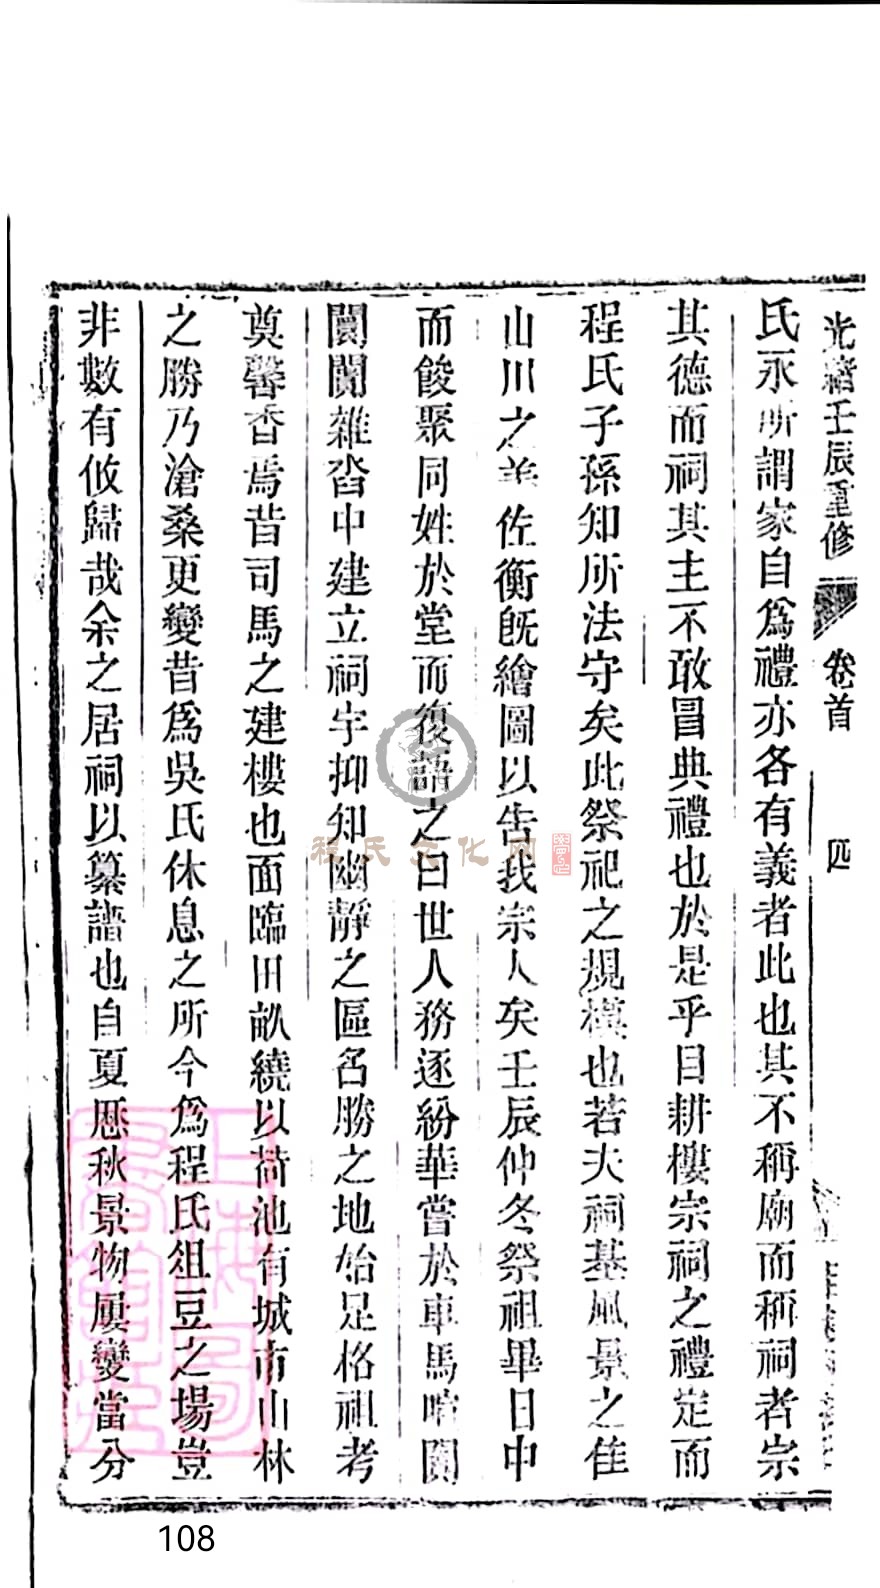 光緒壬辰重修 卷首 四
氏永所謂家自爲禮亦各有義者此也其不稱廟而稱祠者宗
其德而祠其主不敢冒典禮也於是乎目耕樓宗祠之禮定而
程氏子孫知所法守矣此祭祀之規模也若夫祠基風景之佳
山川之美佐衡既繪圖以告我宗人矣壬辰仲冬祭祖畢日中
而餕聚同姓於堂而復語之曰世人務逐紛華嘗於車馬喧闐
闤闠雜沓中建立祠宇抑知幽靜之區名勝之地始足格祖考
奠馨香焉昔司馬之建樓也面臨田畝繞以荷池有城市山林
之勝乃滄桑更變昔爲吳氏休息之所今爲程氏俎豆之場豈
非數有攸歸哉余之居祠以纂譜也自夏歷秋景物屢變當分
程氏文化网
上海圖書館藏
108